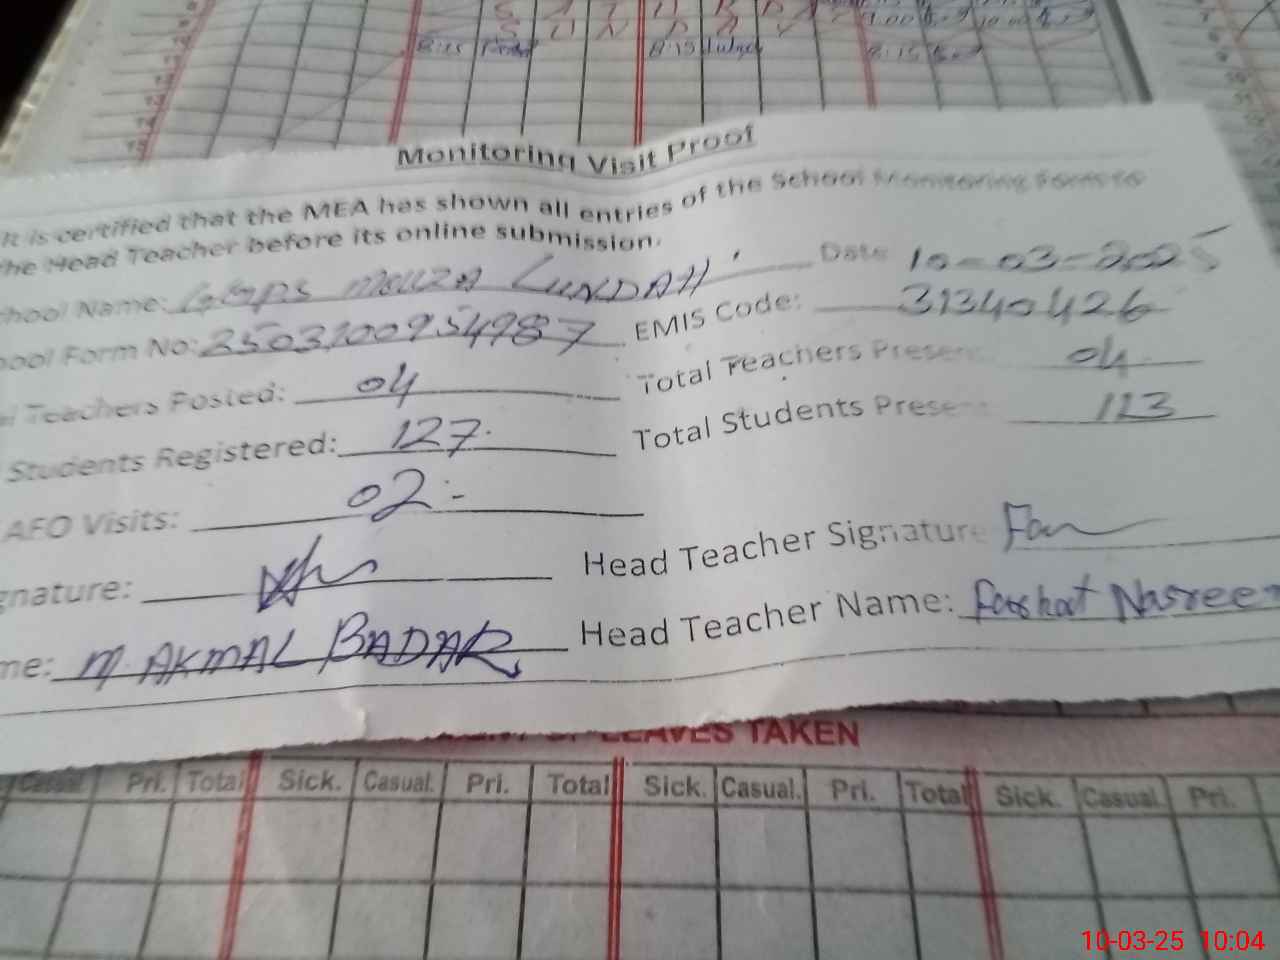 8:15 8:15 8:15
Monitoring Visit Proof
It is certified that the MEA has shown all entries of the School Monitoring Form to
the Head Teacher before its online submission.
Date 10-03-2025
hool Name: GGPS MOUZA LUNDAH
EMIS Code: 31340426
ool Form No: 2503100954987
Total Teachers Present 04
l Teachers Posted: 04
Total Students Present 113
Students Registered: 127
AEO Visits: 02
gnature: Head Teacher Signature
me: M. AKMAL BADAR Head Teacher Name: Farhat Nasreen
LEAVES TAKEN
Casual. Pri. Total Sick. Casual. Pri. Total Sick. Casual. Pri. Total Sick. Casual. Pri.
10-03-25 10:04